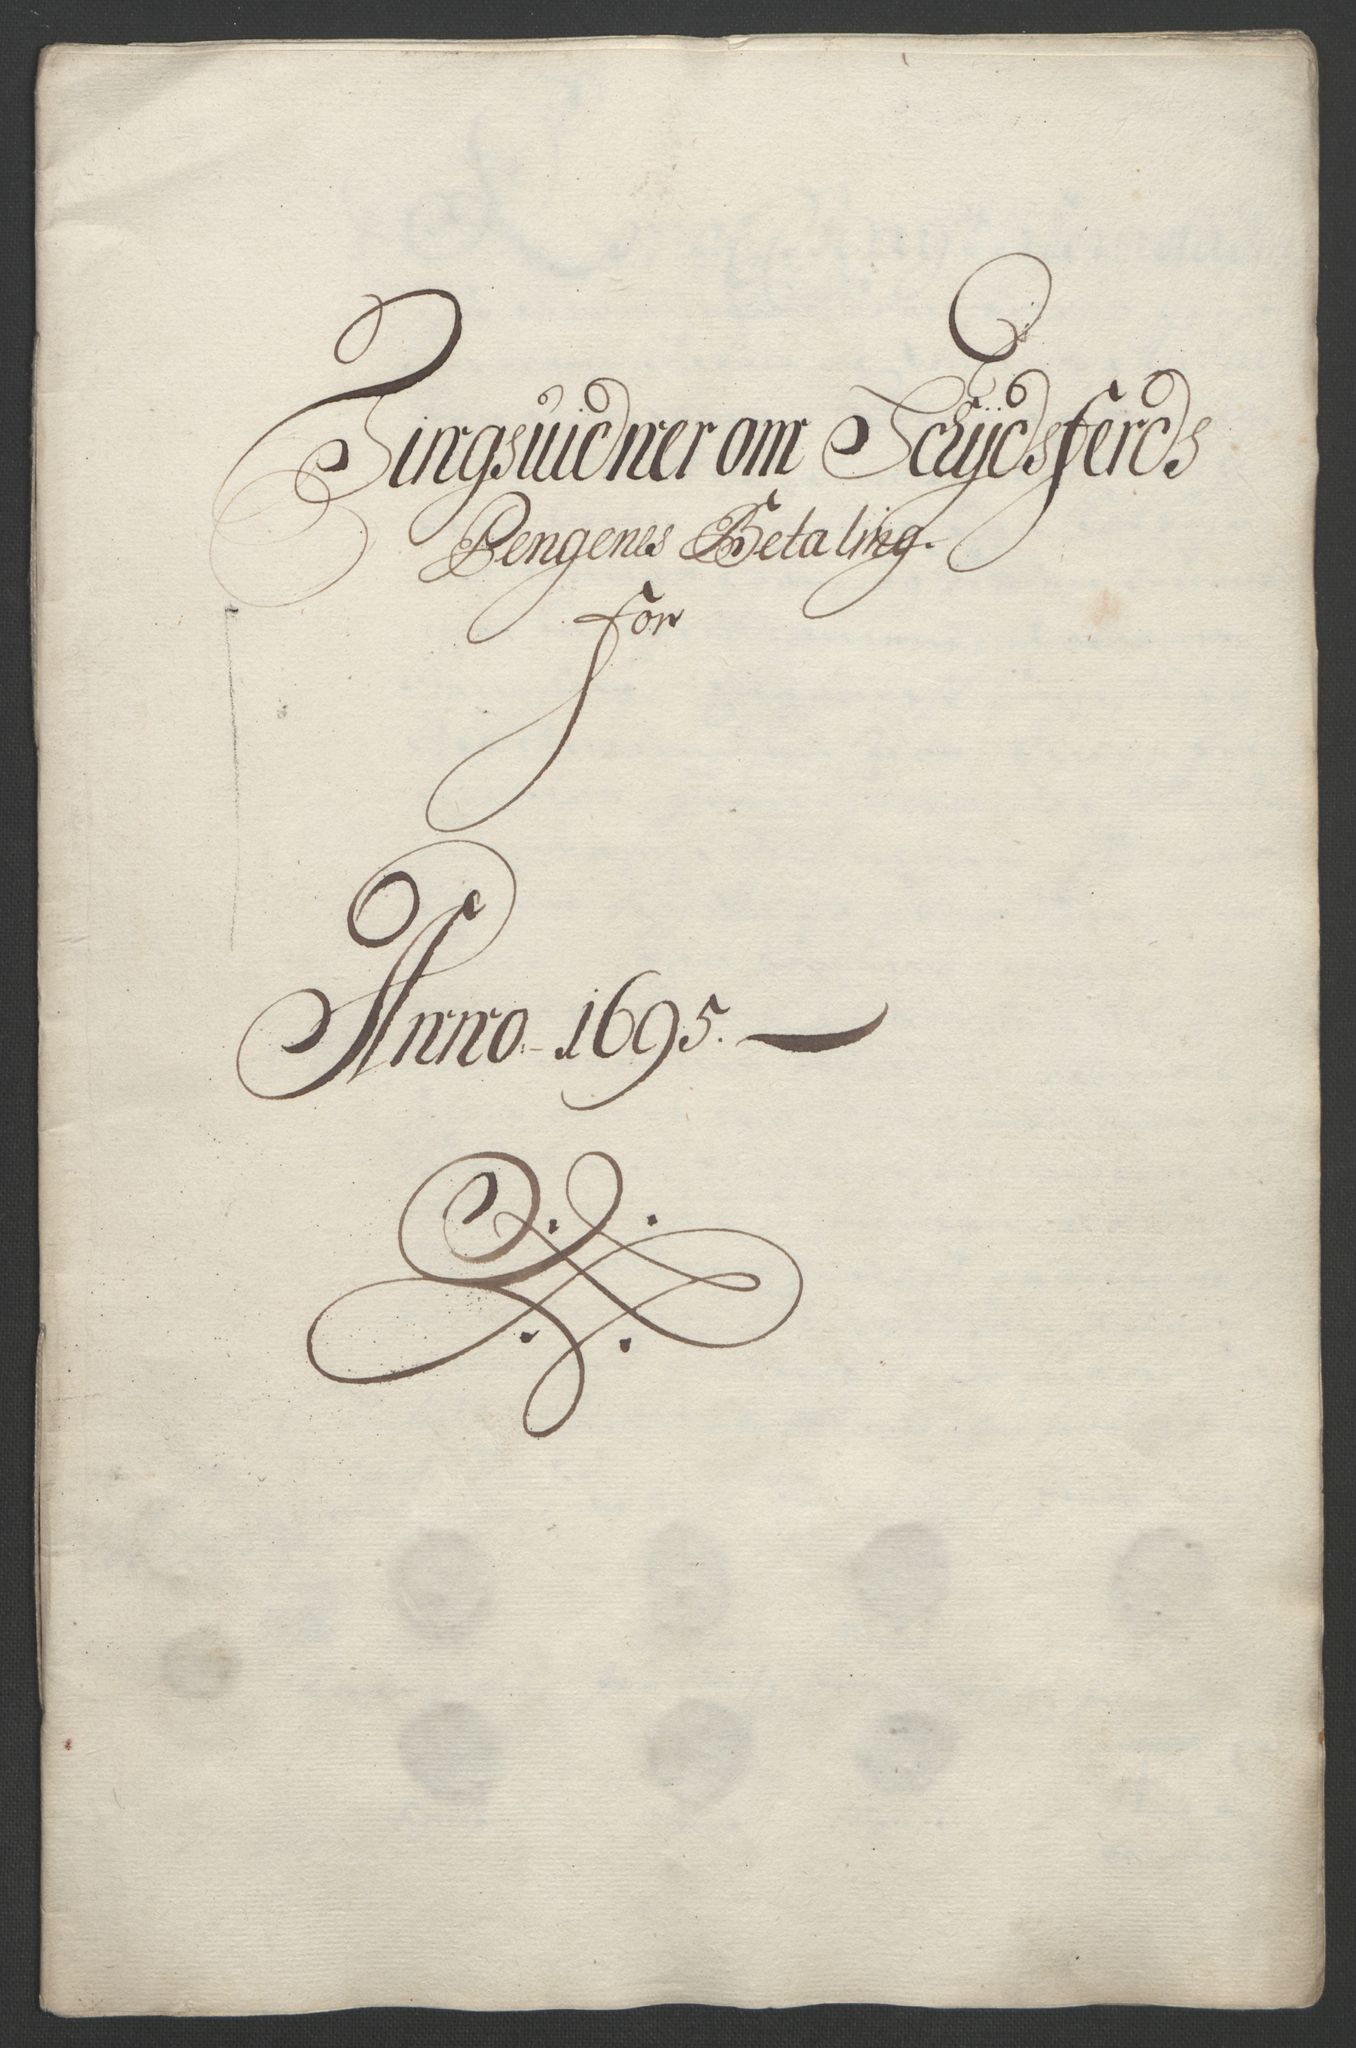 Tingsuidner om Schydsferds
Pengenes Betaling.
for
Anno. 1695.